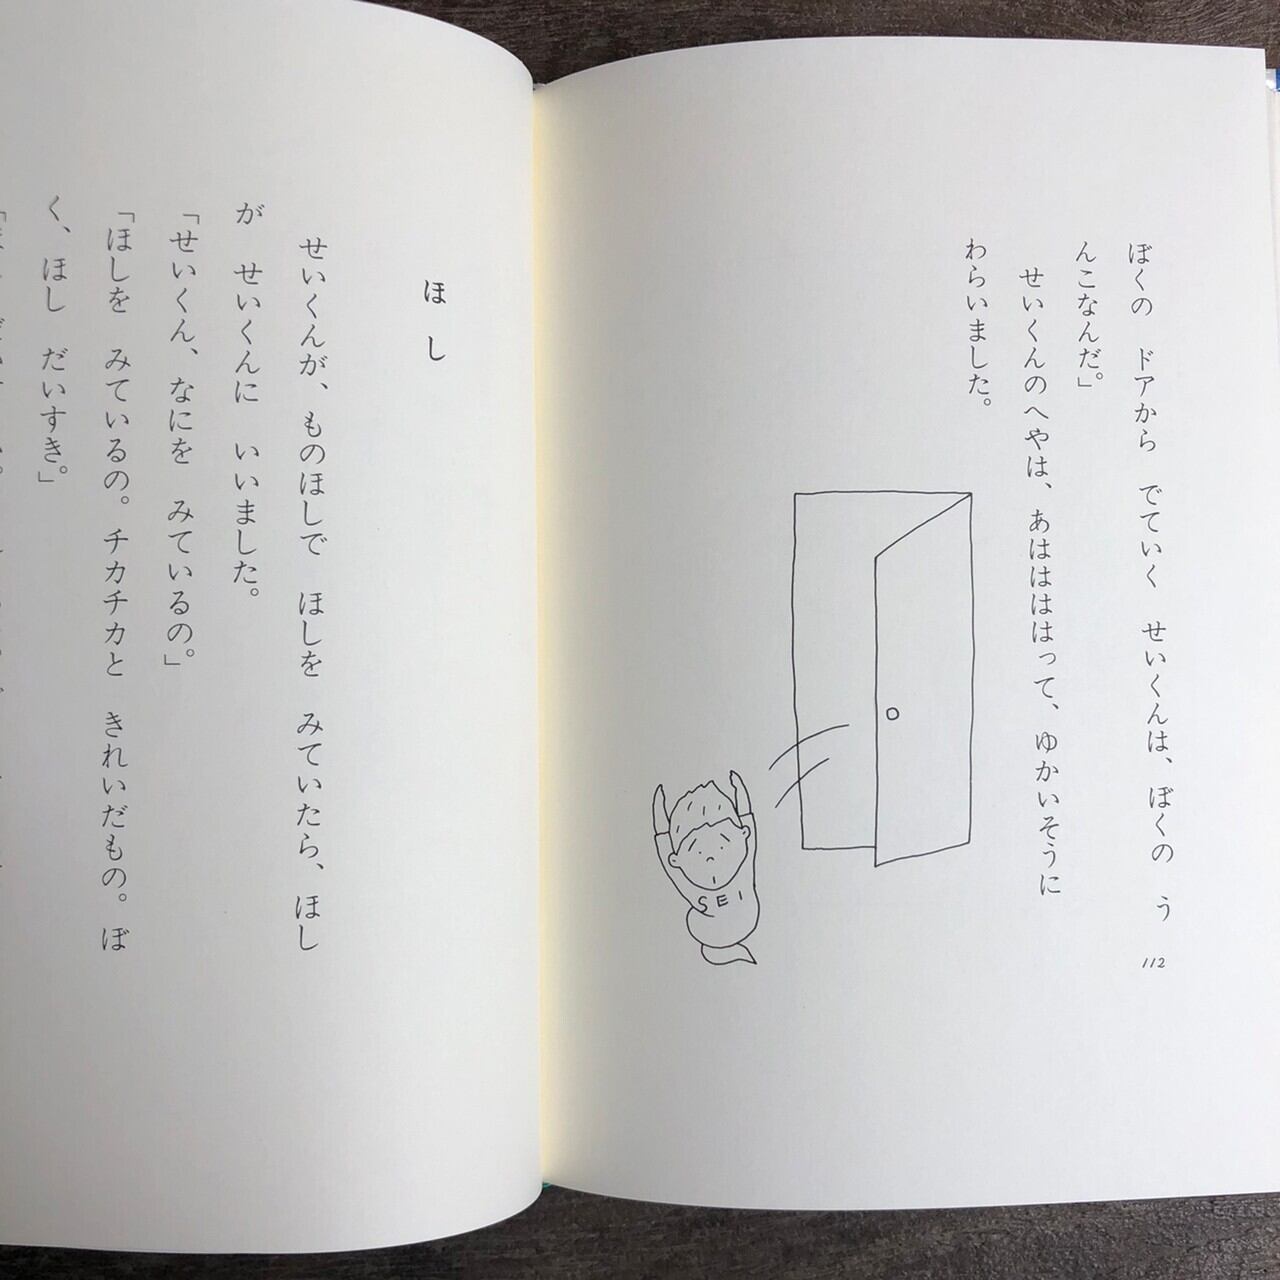 ぼくの　ドアから　でていく　せいくんは、ぼくの　う
んこなんだ。」
せいくんのへやは、あはははって、ゆかいそうに
わらいました。
SEI
112
ほし
せいくんが、ものほしで　ほしを　みていたら、ほし
が　せいくんに　いいました。
「せいくん、なにを　みているの。」
「ほしを　みているの。チカチカと　きれいだもの。ぼ
く、ほし　だいすき。」